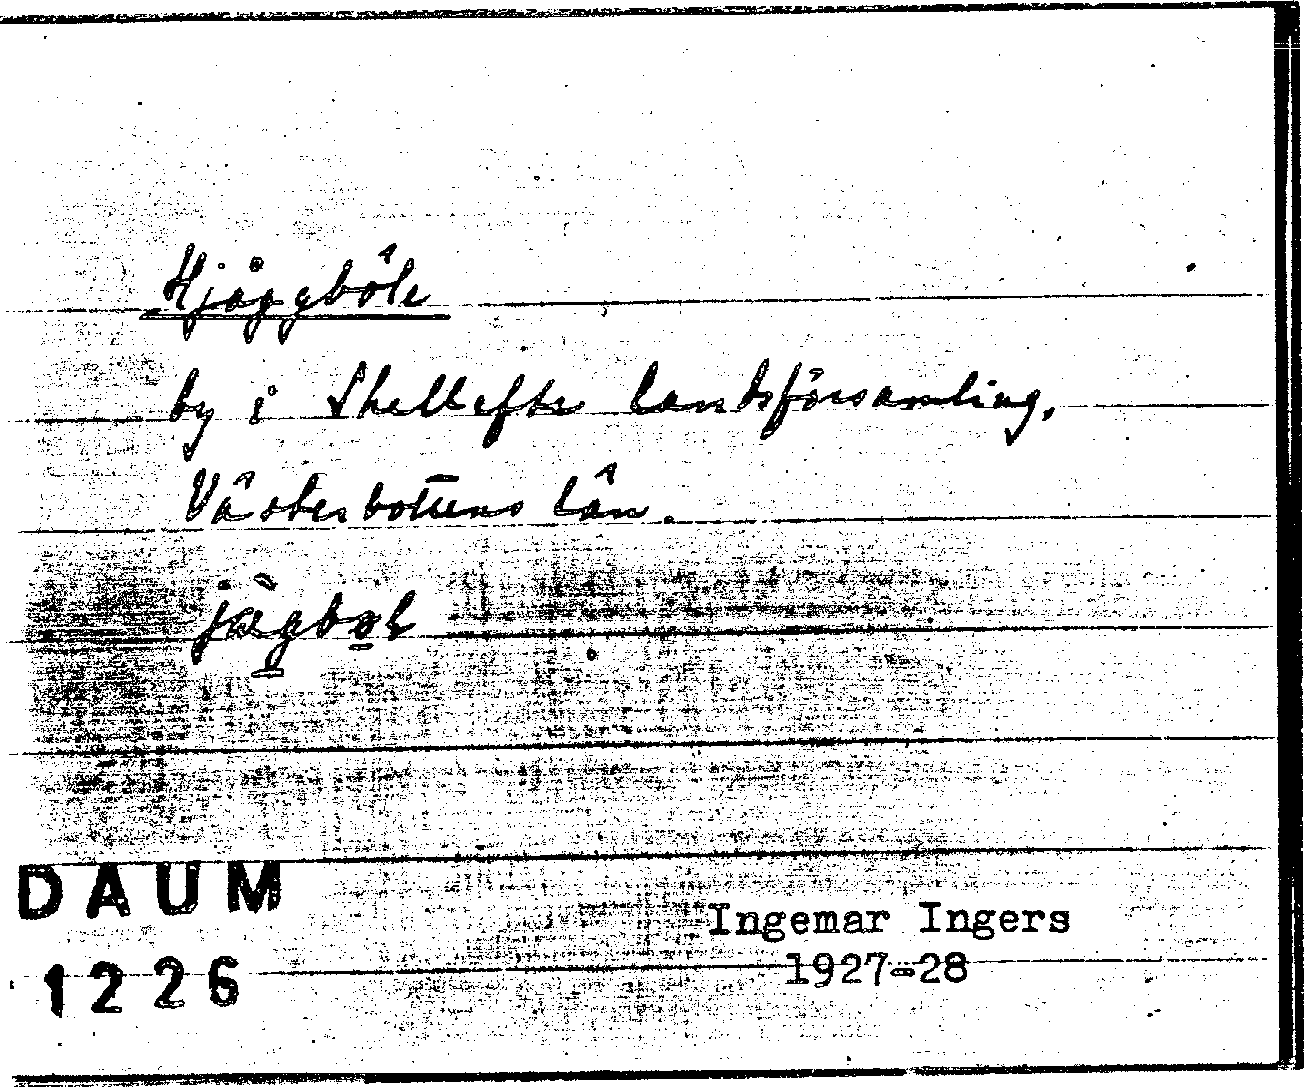 Hjåggböle
by i Skellefte landsförsamling,
Västerbottens län.
DAUM
1226
Ingemar Ingers
1927-28